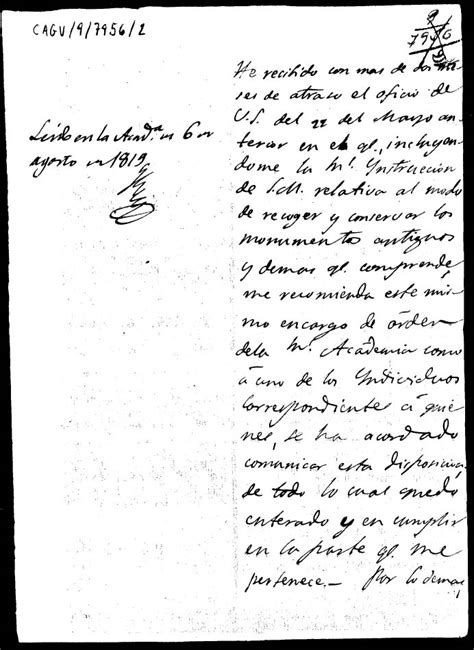 CAGU/9/7956/2
9
7956
Leido en la Acad.ª de 6 de
agosto de 1819
He recibido con mas de dos me-
ses de atraso el oficio de
V.S. del 22 del Mayo an-
terior en el ql. incluyen-
dome la Rl. Ynstruccion
de S.M. relativa al modo
de recoger y conservar los
monumentos antiguos
y demas ql. comprende,
me recomienda este mis-
mo encargo de órden
dela Rl. Académia como
á uno de los Yndividuos
Correspondientes á quie-
nes, se ha acordado
comunicar esta disposicion,
de todo lo cual quedo
enterado y en cumplir
en la parte ql. me
pertenece.— Por lo demas,